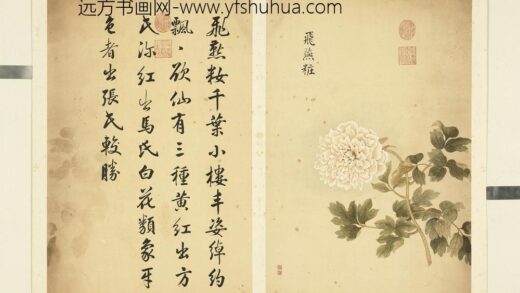 远方书画网-www.yfshuhua.com
飛燕粧
飛燕妝千葉小樓丰姿綽約
飄〻欲仙有三種黄紅出方
氏深紅出馬氏白花類象牙
色者出張氏較勝